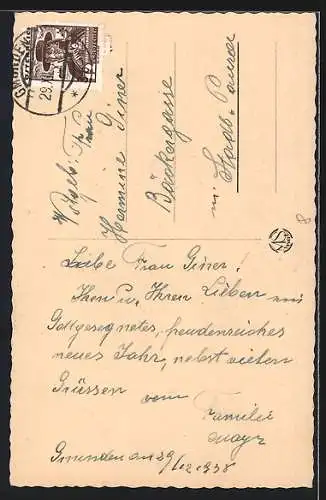 GMUNDEN
29.
Wohlgeb. Frau
Hermine Giner
Bäckergasse
in
8
Liebe Frau Giner!
Ihnen u. Ihren Lieben ein
Gottgesegnetes, freudenreiches
neues Jahr, nebst vielen
Grüssen vom
Familie
Mayr
Gmunden am 29/12 1938